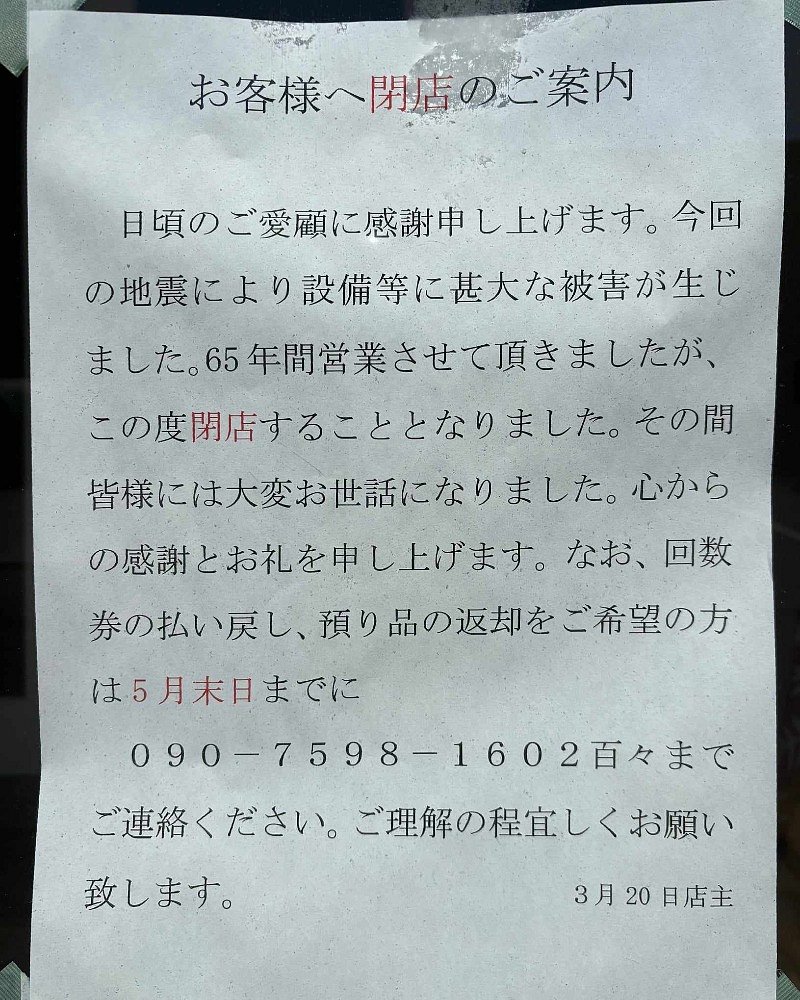 お客様へ閉店のご案内
日頃のご愛顧に感謝申し上げます。今回
の地震により設備等に甚大な被害が生じ
ました。65年間営業させて頂きましたが、
この度閉店することとなりました。その間
皆様には大変お世話になりました。心から
の感謝とお礼を申し上げます。なお、回数
券の払い戻し、預り品の返却をご希望の方
は５月末日までに
０９０－７５９８－１６０２百々まで
ご連絡ください。ご理解の程宜しくお願い
致します。 ３月20日店主